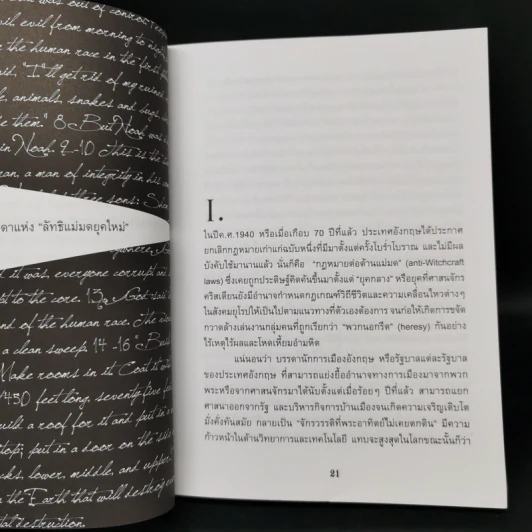 was out of control
evil evil from morning to
the human race in the first
said, "I'll get rid of my ruined
animals, snakes and bugs
them." 8 But Noah was
in Noah. 9-10 This is the
man, a man of integrity in his
three sons:
ดาแห่ง "ลัทธิแม่มดยุคใหม่"
it was, everyone corrupt and
to the core. 13 God said
the human race. The
a clean sweep. 14-16 "Build
Make rooms in it. Coat it with
450 feet long, seventy-five feet
build a roof for it and put in a
top; put in a door on the side
lower, middle, and upper.
on the Earth that will destroy
total destruction.
I.
ในปีค.ศ.1940 หรือเมื่อเกือบ 70 ปีที่แล้ว ประเทศอังกฤษได้ประกาศ
ยกเลิกกฎหมายเก่าแก่ฉบับหนึ่งที่มีมาตั้งแต่ครั้งโบร่ำโบราณ และไม่มีผล
บังคับใช้มานานแล้ว นั่นก็คือ "กฎหมายต่อต้านแม่มด" (anti-Witchcraft
laws) ซึ่งเคยถูกประดิษฐ์คิดค้นขึ้นมาตั้งแต่ "ยุคกลาง" หรือยุคที่ศาสนจักร
คริสเตียนยังมีอำนาจกำหนดกฎเกณฑ์วิถีชีวิตและความเคลื่อนไหวต่างๆ
ในสังคมยุโรปให้เป็นไปตามแนวทางที่ตัวเองต้องการ จนก่อให้เกิดการขจัด
กวาดล้างเล่นงานกลุ่มคนที่ถูกเรียกว่า "พวกนอกรีต" (heresy) กันอย่าง
ไร้เหตุไร้ผลและโหดเหี้ยมอำมหิต
แน่นอนว่า บรรดานักการเมืองอังกฤษ หรือรัฐบาลแต่ละรัฐบาล
ของประเทศอังกฤษ ที่สามารถแย่งยื้ออำนาจทางการเมืองมาจากพวก
พระหรือจากศาสนจักรมาได้นับตั้งแต่เมื่อร้อยๆ ปีที่แล้ว สามารถแยก
ศาสนาออกจากรัฐ และบริหารกิจการบ้านเมืองจนเกิดความเจริญเติบโต
มั่งคั่งทันสมัย กลายเป็น "จักรวรรดิที่พระอาทิตย์ไม่เคยตกดิน" มีความ
ก้าวหน้าในด้านวิทยาการและเทคโนโลยี แทบจะสูงสุดในโลกขณะนั้นก็ว่า
21